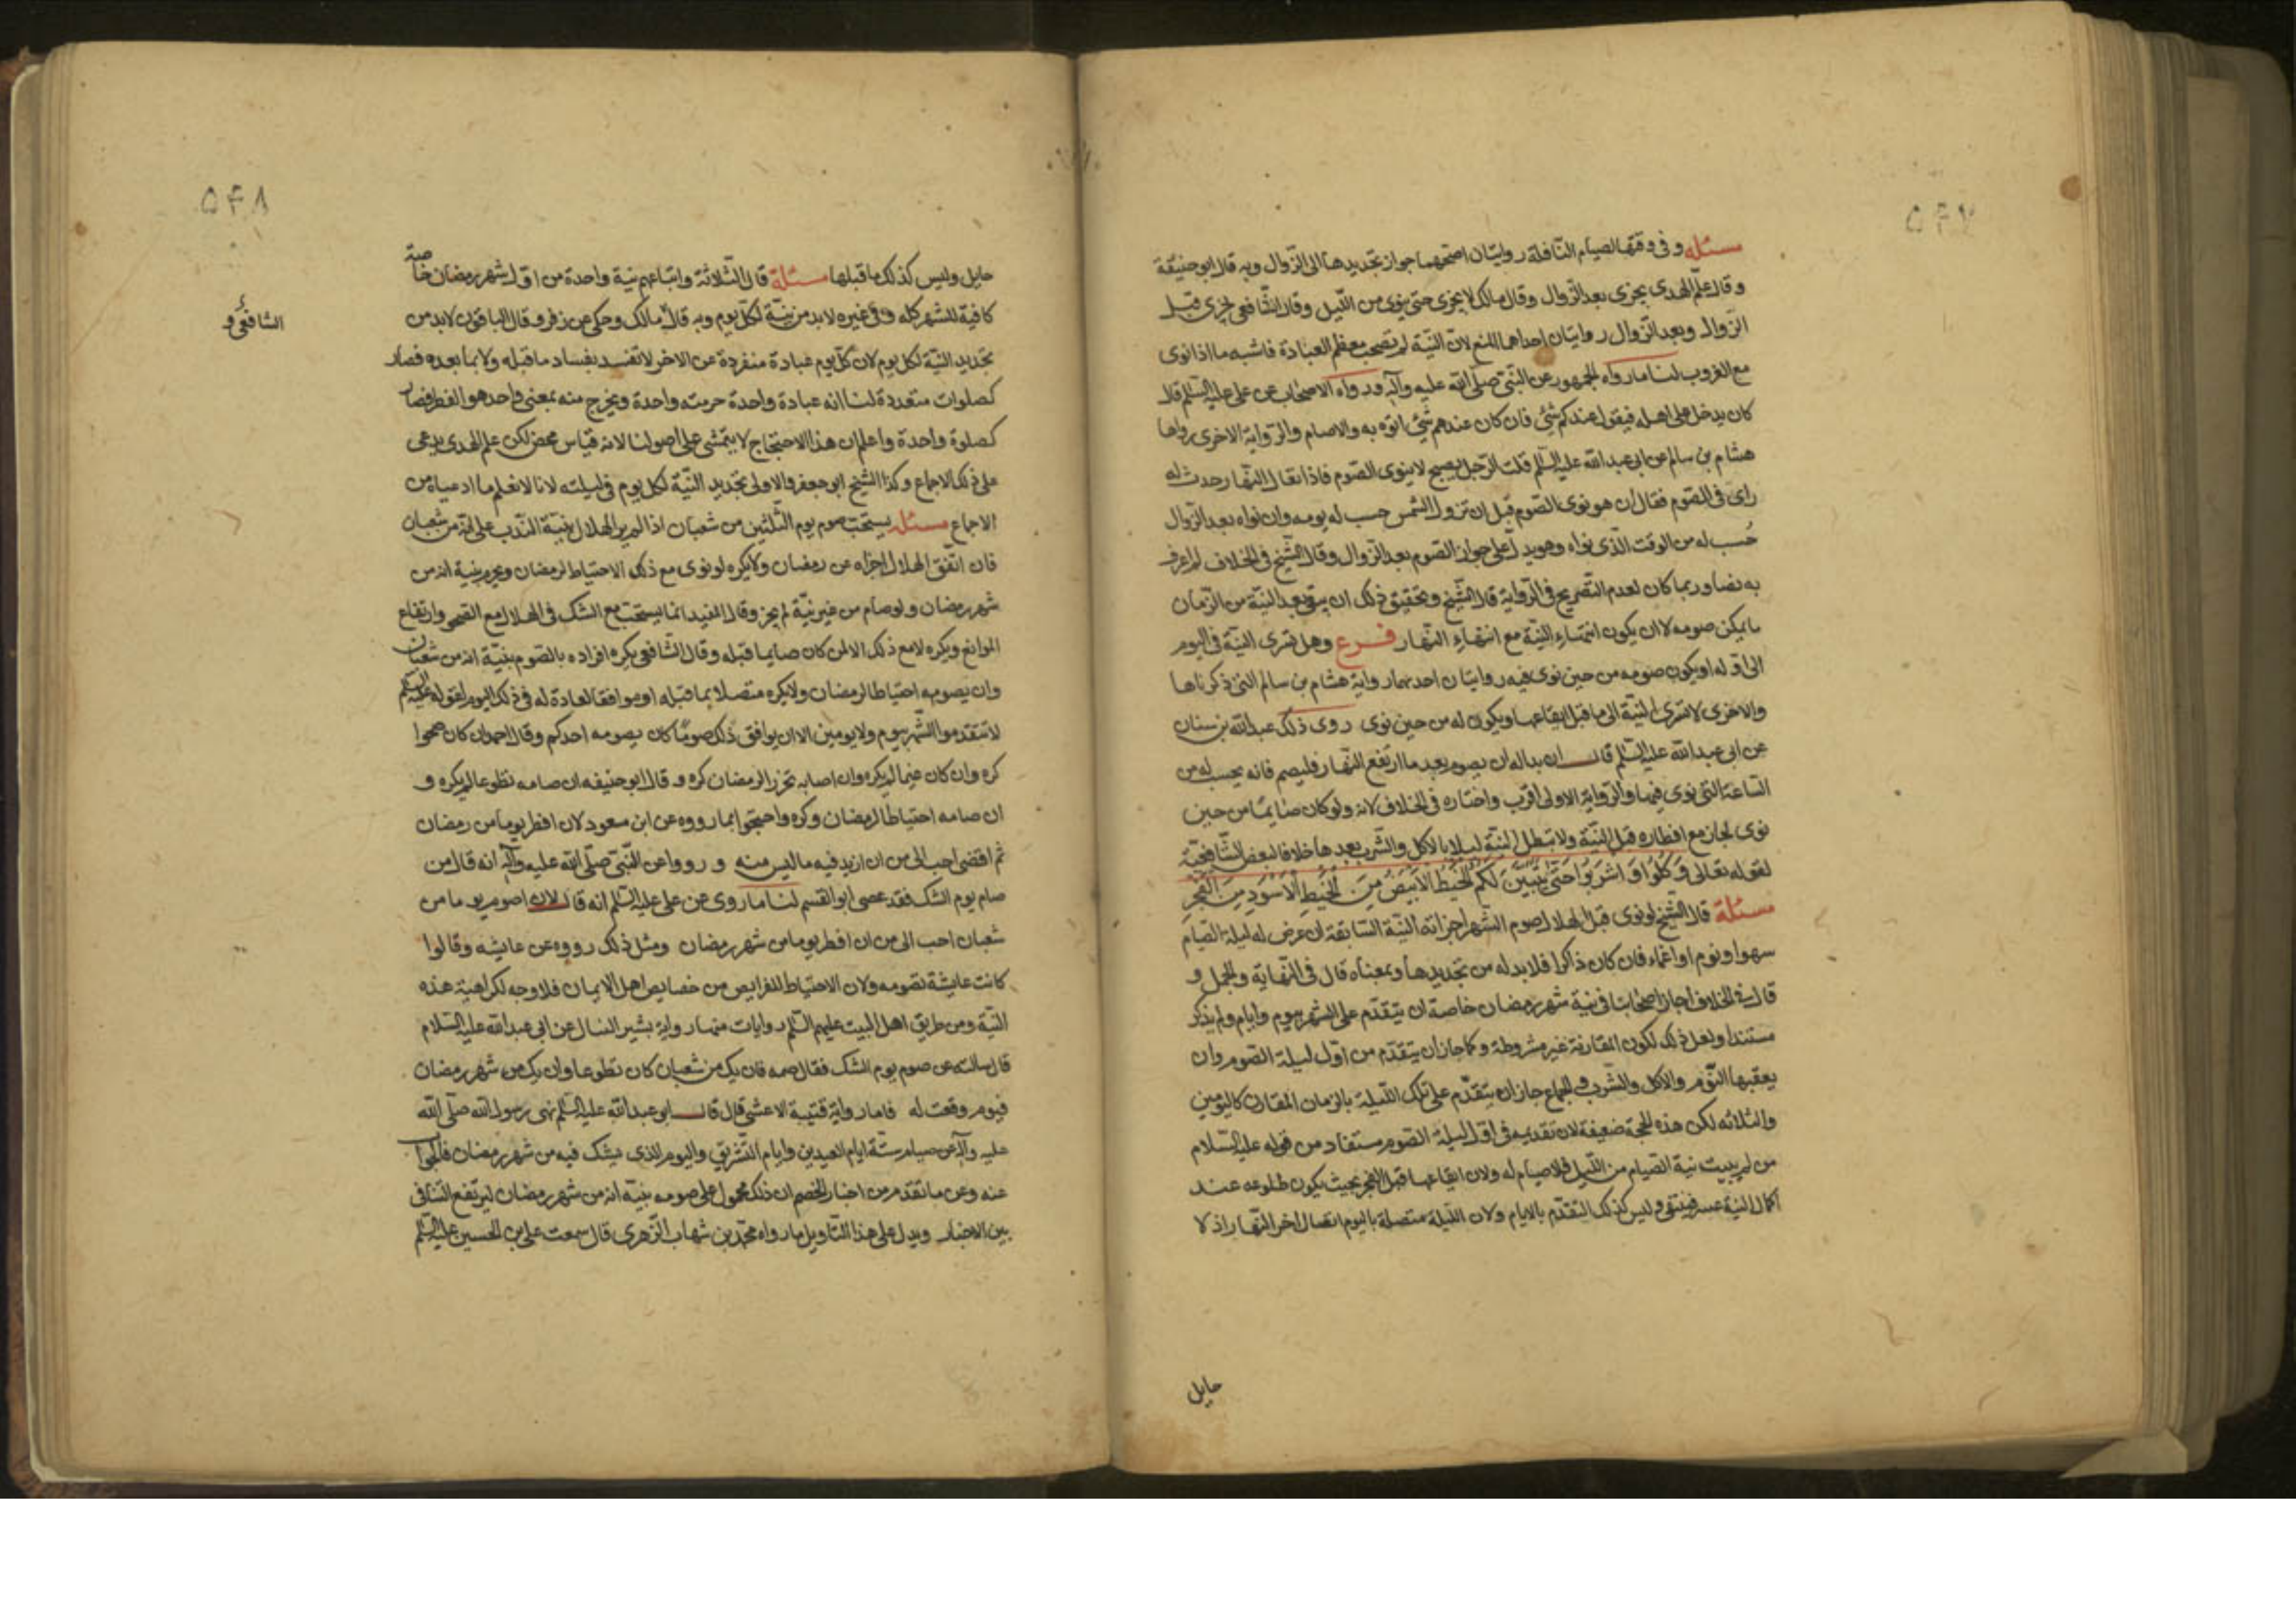 ۵۴۷
مسئله وفی وقتها لصیام النافلة روایتان اصحهما جواز تجدیدها الی الزوال وبه قال ابوحنیفة
وقال علم الهدی یجزی بعد الزوال وقال مالک لا یجزی حتی ینوی من اللیل وقال الشافعی یجزی قبل
الزوال وبعد الزوال روایتان احداهما المنع لان النیة لم تصحب معظم العبادة فاشبه ما اذا نوی
مع الغروب لنا ما رواه الجمهور عن النبی صلی الله علیه وآله ورواه الاصحاب عن علی علیه السلم قال
کان یدخل علی اهله فیقول عندکم شئ فان کان عندهم شئ اتوه به والا صام والروایة الاخری رواها
هشام بن سالم عن ابی عبدالله علیه السلم قلت الرجل یصبح لا ینوی الصوم فاذا تعالی النهار حدث له
رای فی الصوم فقال ان هو نوی الصوم قبل ان تزول الشمس حسب له یومه وان نواه بعد الزوال
حُسب له من الوقت الذی نواه وهو یدل علی جواز الصوم بعد الزوال وقال الشیخ فی الخلاف لم اعرف
به نصا وربما کان لعدم التصریح فی الروایة قال الشیخ وتحقیق ذلک ان یبقی بعد النیة من الزمان
ما یمکن صومه لا ان یکون انتهاء النیة مع انتهاء النهار فرع وهل تسری النیة فی الیوم
الی اوله او یکون صومه من حین نوی فیه روایتان احدیهما روایة هشام بن سالم التی ذکرناها
والاخری لا تسری النیة الی ما قبل ایقاعها ویکون له من حین نوی روی ذلک عبدالله بن سنان
عن ابی عبدالله علیه السلم قال ان بدا له ان یصوم بعد ما ارتفع النهار فلیصم فانه یحسب له من
الساعة التی نوی فیها والروایة الاولی اقرب واختاره فی الخلاف لانه ولو کان صایما من حین
نوی لجاز مع افطاره قبل النیة ولا تبطل النیة لیلا بالاکل والشرب بعدها خلافا لبعض الشافعیة
لقوله تعالی وَکُلُوا وَاشرَبُوا حَتّی یَتَبَیَّنَ لَکُمُ الخَیطُ الاَبیَضُ مِنَ الخَیطِ الاَسوَدِ مِنَ الفَجرِ
مسئلة قال الشیخ لو نوی قبل الهلال لصوم الشهر اجزاته النیة السابقة ان عرض له لیلة الصیام
سهو او نوم او اغماء فان کان ذاکرا فلابد له من تجدیدها وبمعناه قال فی النهایة والجمل و
قال فی الخلاف اجاز اصحابنا فی نیة شهر رمضان خاصة ان یتقدم علی الشهر بیوم وایام ولم یذکر
مستندا ولعل ذلک لکون المقارنة غیر مشروطة وکما جاز ان یتقدم من اول لیلة الصوم وان
یعقبها النوم والاکل والشرب والجماع جاز ان یتقدم علی تلک اللیلة بالزمان المقارن کالیومین
والثلاثه لکن هذه الحجة ضعیفة لان تقدیمه فی اول لیلة الصوم مستفاد من قوله علیه السلام
من لم یبیت نیة الصیام من اللیل فلا صیام له ولان ایقاعها قبل الفجر بحیث یکون طلوعه عند
اکمال النیة عسر فینتفی ولیس کذلک التقدم بالایام ولان اللیلة متصلة بالیوم اتصال اخر النهار اذ لا
حایل
۵۴۸
حایل ولیس کذلک ما قبلها مسئلة قال الثلاثة واتباعهم نیة واحدة من اول شهر رمضان خاصة
کافیة للشهر کله وفی غیره لابد من نیة لکل یوم وبه قال مالک وحکی عن زفر وقال الباقون لابد من
الشافعی و
تجدید النیة لکل یوم لان کل یوم عبادة منفردة عن الاخر لا تفسد بفساد ما قبله ولا بما بعده فصار
کصلوات متعددة لنا انه عبادة واحدة حرمته واحدة ویخرج منه بمعنی واحد هو الفطر فصار
کصلوة واحدة واعلم ان هذا الاحتجاج لا یتمشی علی اصولنا لانه قیاس محض لکن علم الهدی یدعی
علی ذلک الاجماع وکذا الشیخ ابو جعفر والاولی تجدید النیة لکل یوم فی لیلته لانا لا نعلم ما ادعیاه من
الاجماع مسئله یستحب صوم یوم الثلثین من شعبان اذا لم یر الهلال بنیة الندب علی انه من شعبان
فان اتفق الهلال اجزاه عن رمضان ولا یکره لو نوی مع ذلک الاحتیاط لرمضان ویحرم بنیة انه من
شهر رمضان ولو صام من غیر نیة لم یجز وقال المفید انما یستحب مع الشک فی الهلال لا مع الصحو وارتفاع
الموانع ویکره لا مع ذلک الا لمن کان صایما قبله وقال الشافعی یکره افراده بالصوم بنیة انه من شعبان
وان یصومه احتیاطا لرمضان ولا یکره متصلا بما قبله او موافقا لعادة له فی ذلک الیوم لقوله علیه السلم
لا تتقدموا الشهر بیوم ولا یومین الا ان یوافق ذلک صوما کان یصومه احدکم وقال احمد ان کان صحوا
کره وان کان غیما لم یکره وان اصابه تحرزا لرمضان کره وقال ابو حنیفه ان صامه تطوعا لم یکره و
ان صامه احتیاطا لرمضان وکره واحتجوا بما رووه عن ابن مسعود لان افطر یوما من رمضان
ثم اقضی احب الی من ان ازید فیه ما لیس منه ورووا عن النبی صلی الله علیه وآله انه قال من
صام یوم الشک فقد عصی ابو القسم لنا ما روی عن علی علیه السلم انه قال لان اصوم یوما من
شعبان احب الی من ان افطر یوما من شهر رمضان ومثل ذلک رووه عن عایشه وقالوا
کانت عایشة تصومه ولان الاحتیاط للفرایض من خصایص اهل الایمان فلا وجه لکراهیة هذه
النیة ومن طریق اهل البیت علیهم السلم روایات منها روایة بشیر النبال عن ابی عبدالله علیه السلام
قال سالته عن صوم یوم الشک فقال صمه فان یک من شعبان کان تطوعا وان یک من شهر رمضان
فیوم وقعت له فاما روایة قتیبة الاعشی قال قال ابو عبدالله علیه السلم نهی رسول الله صلی الله
علیه وآله عن صیام ستة ایام العیدین وایام التشریق والیوم الذی یشک فیه من شهر رمضان فالجواب
عنه وعن ما تقدم من اخبار الخصم ان ذلک محمول علی صومه بنیة انه من شهر رمضان لیرتفع التنافی
بین الاخبار ویدل علی هذا التاویل ما رواه محمد بن شهاب الزهری قال سمعت علی بن الحسین علیه السلم